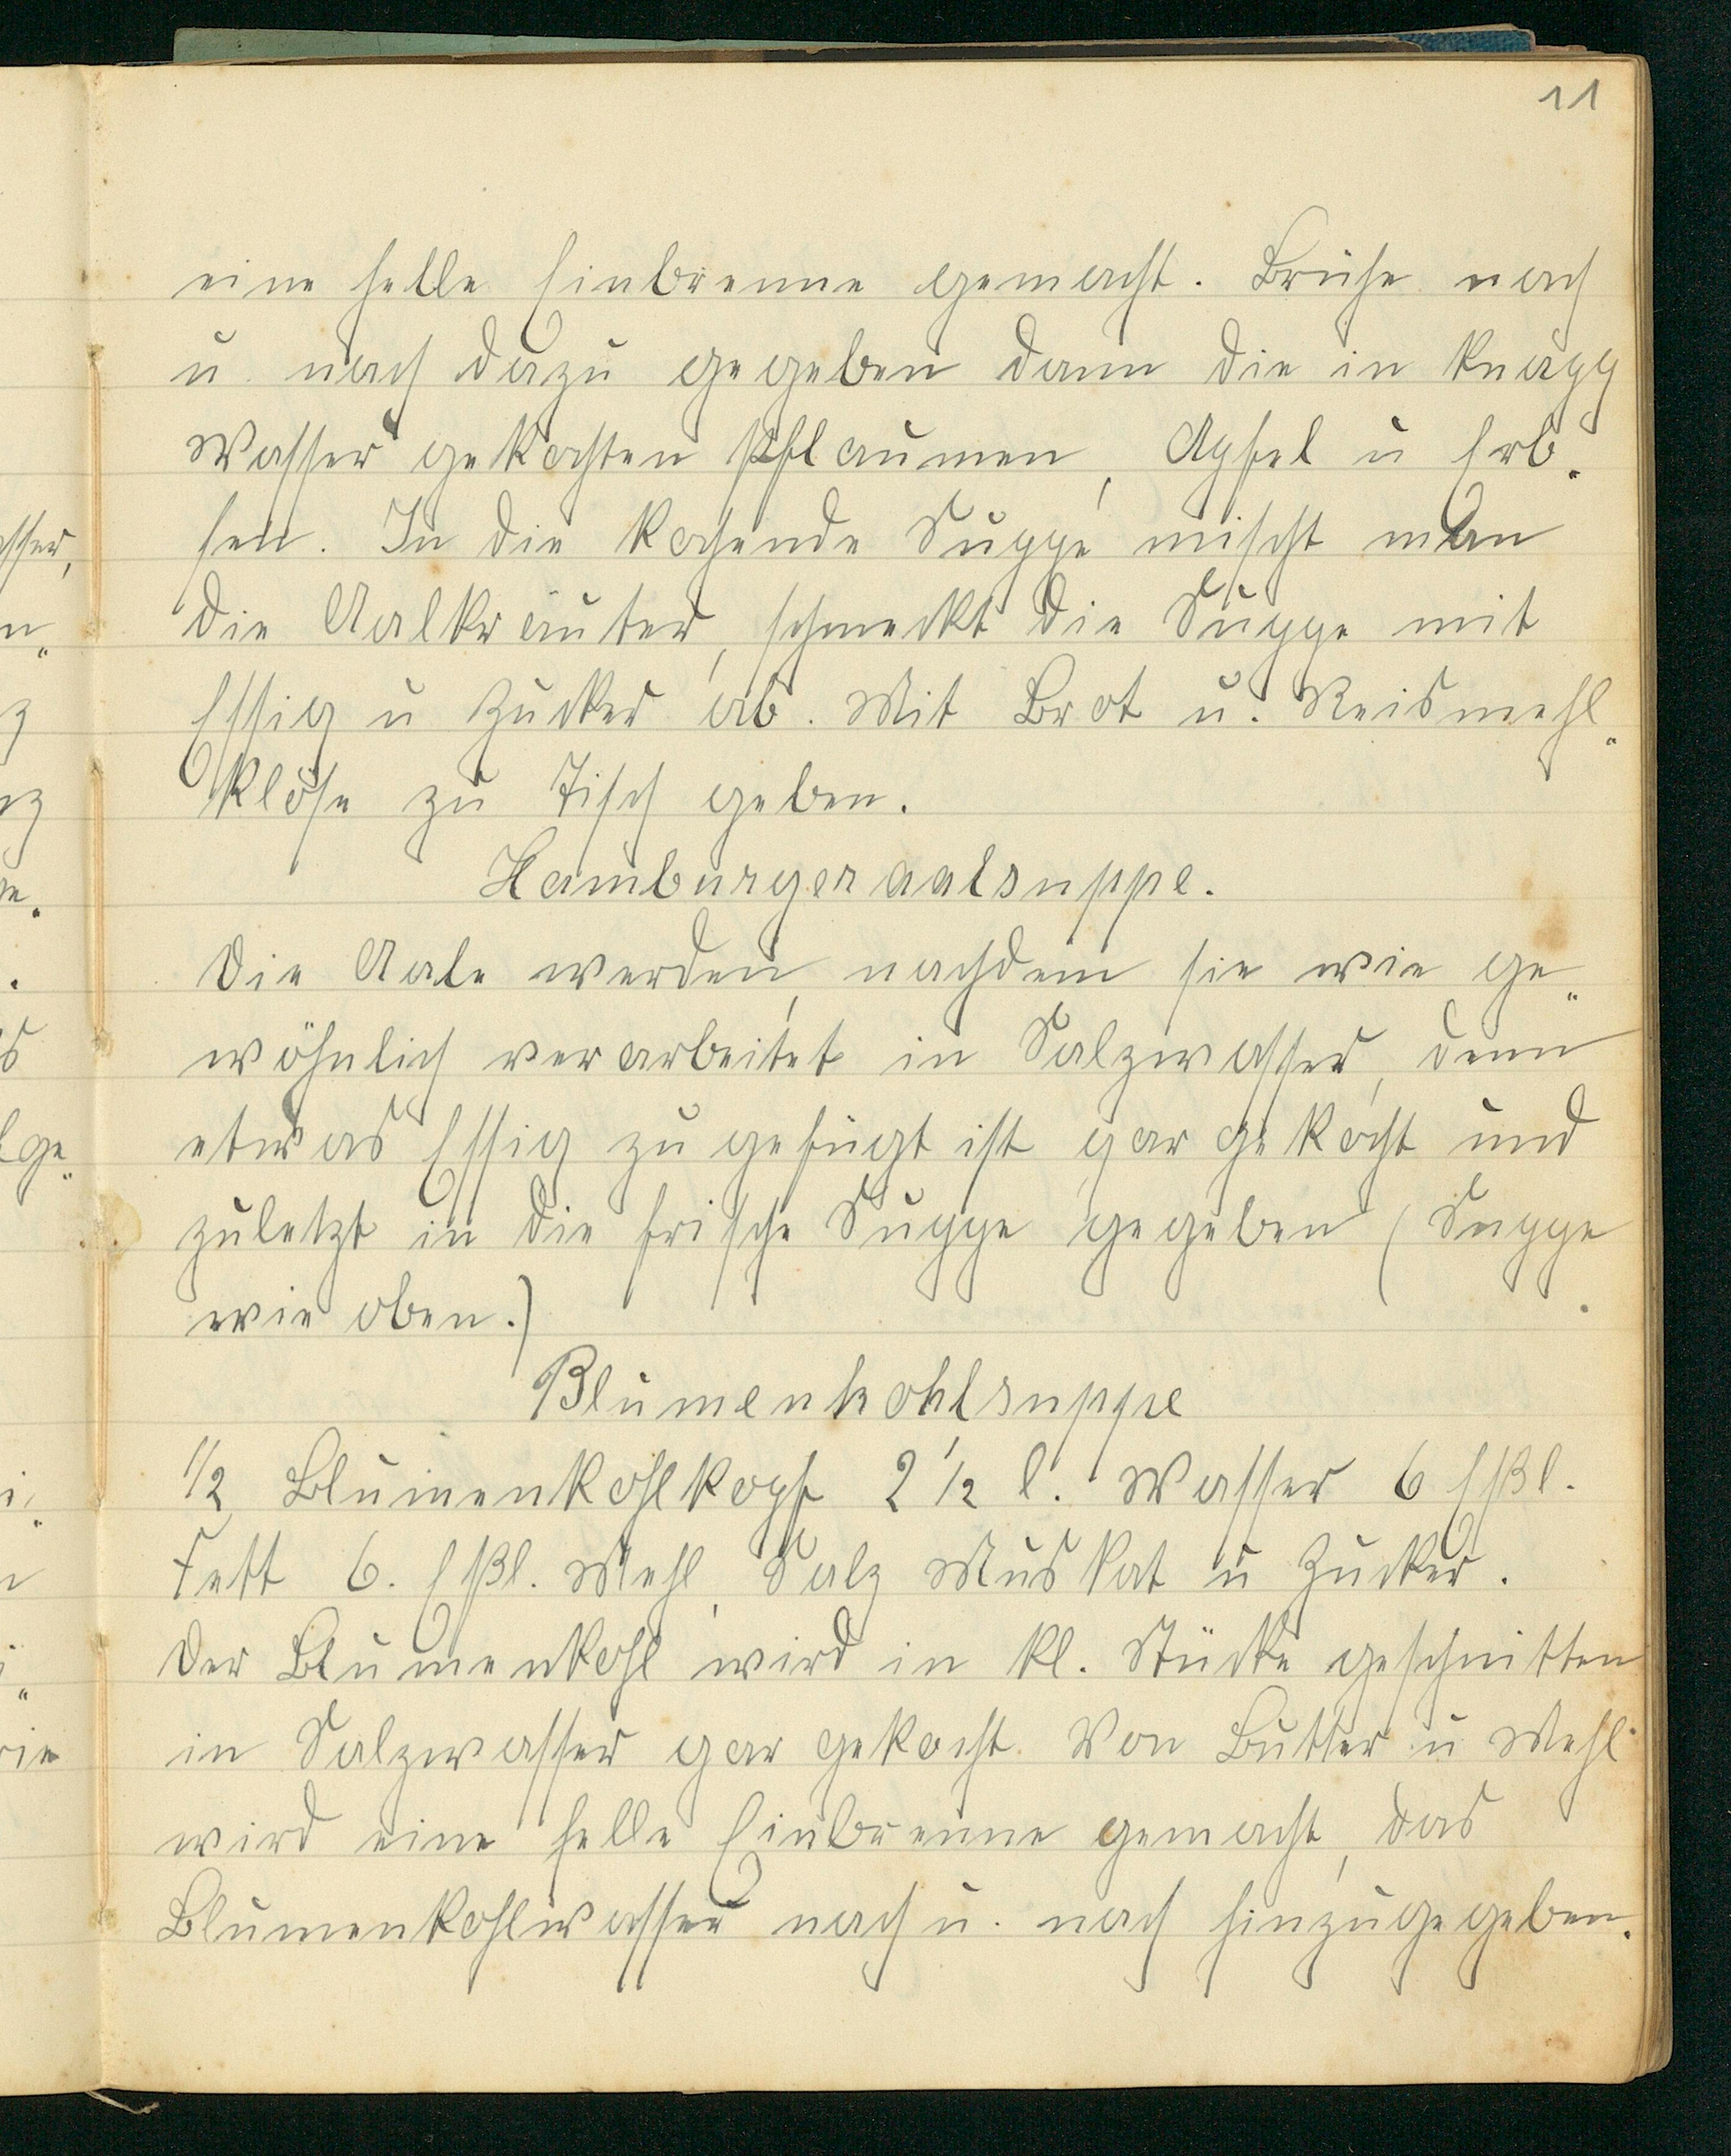 11
eine helle Einbrenne gemacht. Brühe nach
u. nach dazu gegeben dann die in knapp
Wasser gekochten Pflaumen, Apfel u Erb„
sen. In die kochende Suppe mischt man
die Aalkräuter, schmeckt die Suppe mit
Essig u Zucker ab. Mit Brot u. Reismehl„
klöse zu Tisch geben.
Hamburgeraalsuppe.
Die Aale werden, nachdem sie wie ge„
wöhnlich verarbeitet in Salzwasser, denn
etwas Essig zugefügt ist gar gekocht und
zuletzt in die frische Suppe gegeben (Suppe
wie oben.)
Blumenkohlsuppe
1/2 Blumenkohlkopf 2 1/2 l. Wasser 6 Eßl.
Fett 6. Eßl. Mehl, Salz Muskat u Zucker.
Der Blumenkohl wird in kl. Stücke geschnitten
in Salzwasser gar gekocht. Von Butter u Mehl
wird eine helle Einbrenne gemacht, das
Blumenkohlwasser nach u. nach hinzugegeben.